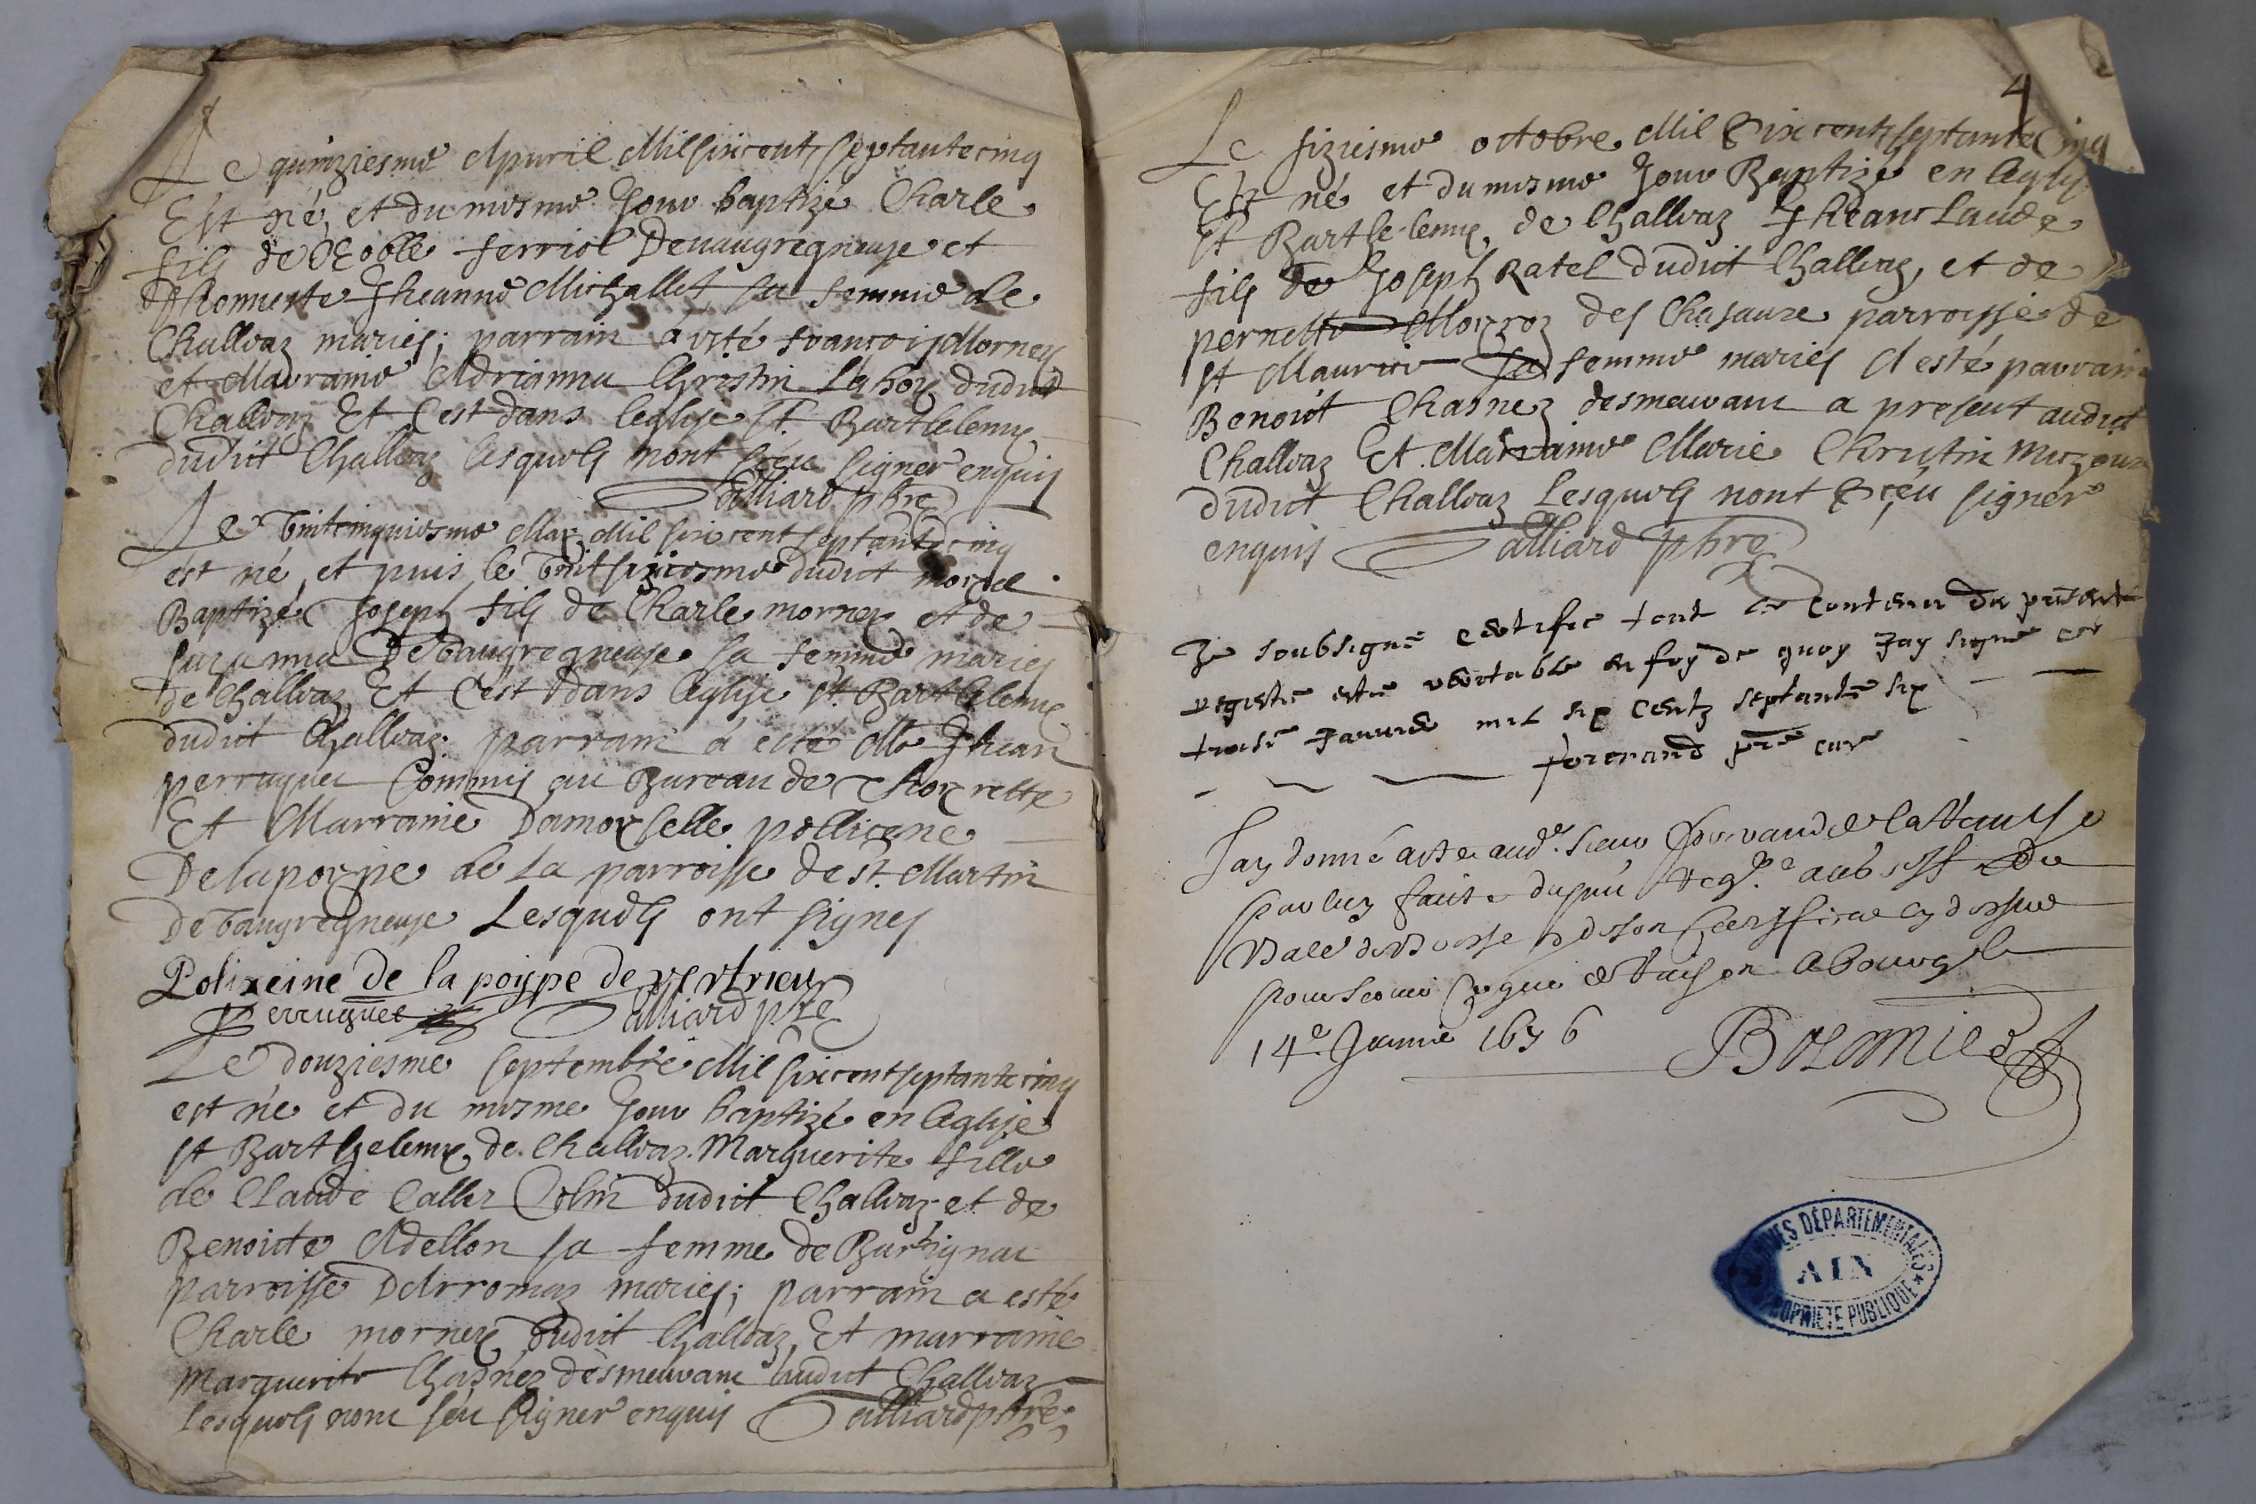 Le quinziesme Apuril Mil six cent septante cinq
Est né, et du mesme Jour baptizé Charle
fils de Noble ferriol Deuaugregneuse et
d'honneste Jheanne Michallet sa femme de
Challoaz mariés; parrain a esté francois Morney
et Marraine Adrianna Christin dudict
Challoaz Et c'est dans leglise St. Barthelemy
dudict Challoaz lesquels n'ont sceu signer enquis
Galliard pbre
Le vintcinquiesme May Mil six cent septante cinq
est né, et puis le vintsiziesme dudict moy
Baptizé Joseph fils de Charle morney et de
suzanna Devaugregneuse sa femme mariés
de Challoaz Et c'est dans leglise St. Barthelemy
dudict Challoaz: parrain a esté Mre Jhean
perruquet Commis au Bureau de
Et Marraine Damoyselle pollixene
Delapoype de la parroisse de st. Martin
Devaugregneuse Lesquels ont signes
Polixeine de la poijpe de vertrieu
Perruquet Galliard pbre
Le douziesme septembre Mil six cent septante cinq
est né et du mesme Jour baptizé en leglise
st Barthelemy de Challoaz Marguerite fille
de Claude Caller Colin dudict Challoaz et de
Benoicte Adellon sa femme de
parroisse Darromaz mariés; parrain a esté
Charle morney dudict Challoaz, Et marraine
Marguerite Chasnez audict Challoaz
Lesquels nont sceu signer enquis Galliard pbre
4
Le siziesme octobre Mil six cent septante Cinq
Est né et du mesme Jour Baptizé en leglise
st Barthelemy de Challoaz Jhean Claude
fils de Joseph Ratel dudict Challoaz, et de
pernette des Chasaux parroisse de
st Maurice sa femme mariés A esté parrain
Benoict Chasnez a present audict
Challoaz Et Marraine Marie Christin
dudict Challoaz Lesquels nont sceu signer
enquis Galliard pbre
Je soubsigné certifie tout le contenu du present
registre estre veritable en foy de quoy Jay signé ce
troise Januier mil six centz septante six
forerand pre cure
Jay donné acte aud. sieur de la
par luy faite du pnt Reg.e
de son Certificat
pour a bourg le
14e Januie 1676
ARCHIVES DÉPARTEMENTALES
AIN
PROPRIÉTÉ PUBLIQUE